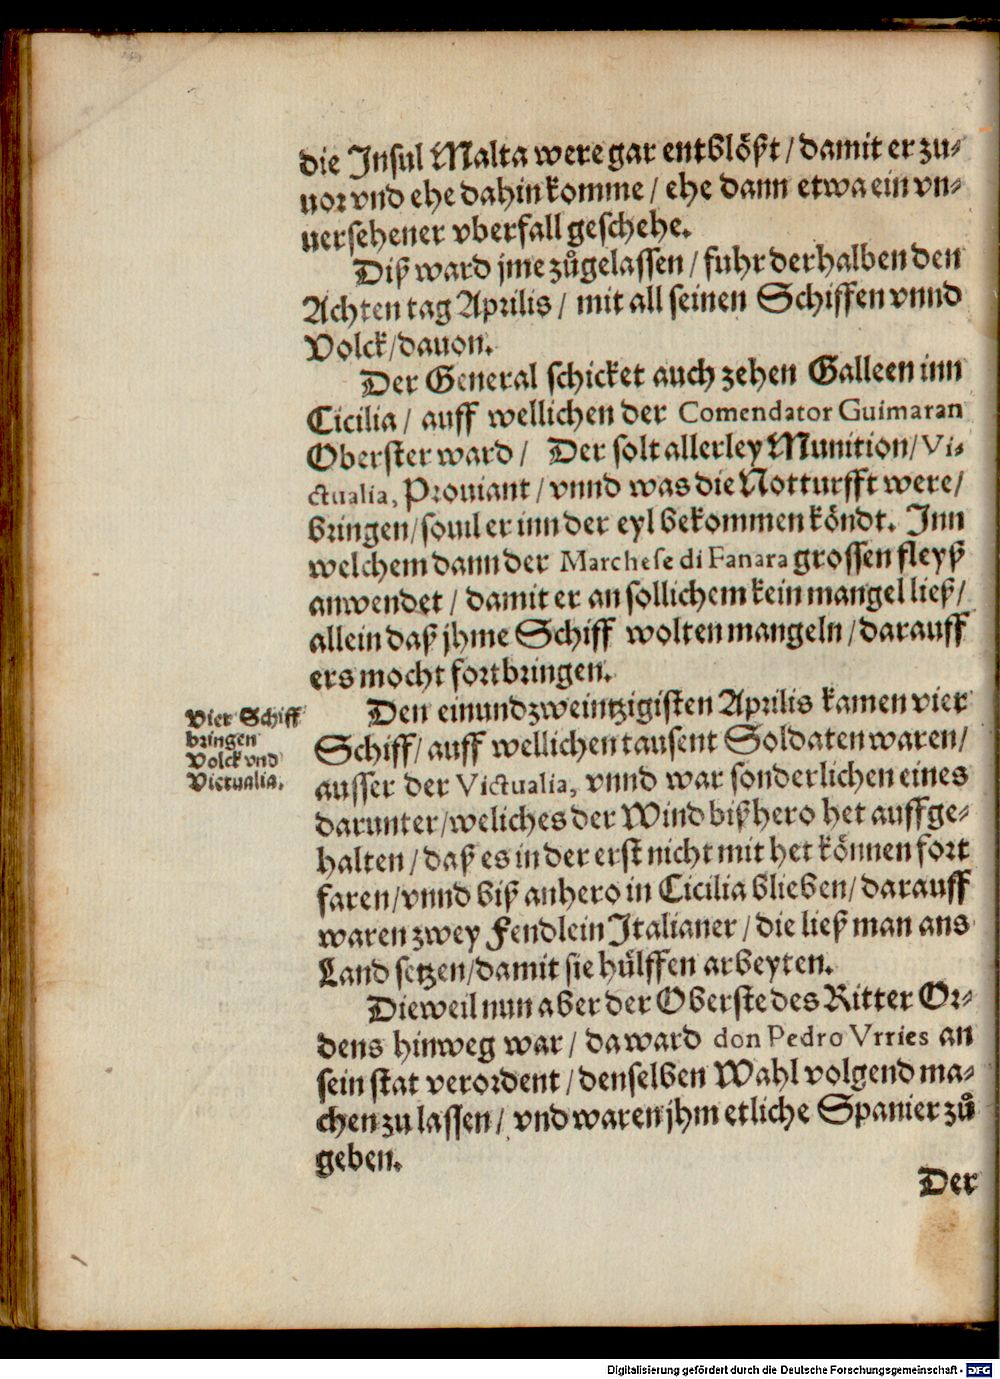 die Insul Malta were gar entblößt / damit er zu-
uor vnd ehe dahin komme / ehe dann etwa ein vn-
uersehener vberfall geschehe.
Diß ward jme zůgelassen / fuhr derhalben den
Achten tag Aprilis / mit all seinen Schiffen vnnd
Volck / dauon.
Der General schicket auch zehen Galleen inn
Cicilia / auff wellichen der Comendator Guimaran
Oberster ward / Der solt allerley Munition / Vi-
ctualia, Prouiant / vnnd was die Notturfft were /
bringen / souil er inn der eyl bekommen köndt. Inn
welchem dann der Marchese di Fanara grossen fleyß
anwendet / damit er an sollichem kein mangel ließ /
allein daß jhme Schiff wolten mangeln / darauff
ers mocht fortbringen.
Den einundzweintzigisten Aprilis kamen vier
Schiff / auff wellichen tausent Soldaten waren /
ausser der Victualia, vnnd war sonderlichen eines
darunter / weliches der Wind bißhero het auffge-
halten / daß es in der erst nicht mit het können fort
faren / vnnd biß anhero in Cicilia blieben / darauff
waren zwey Fendlein Italianer / die ließ man ans
Land setzen / damit sie hülffen arbeyten.
Dieweil nun aber der Oberste des Ritter Or-
dens hinweg war / da ward don Pedro Vrries an
sein stat verordent / denselben Wahl volgend ma-
chen zu lassen / vnd waren jhm etliche Spanier zů
geben.
Der
Vier Schiff
bringen
Volck vnd
Victualia.
Digitalisierung gefördert durch die Deutsche Forschungsgemeinschaft - DFG